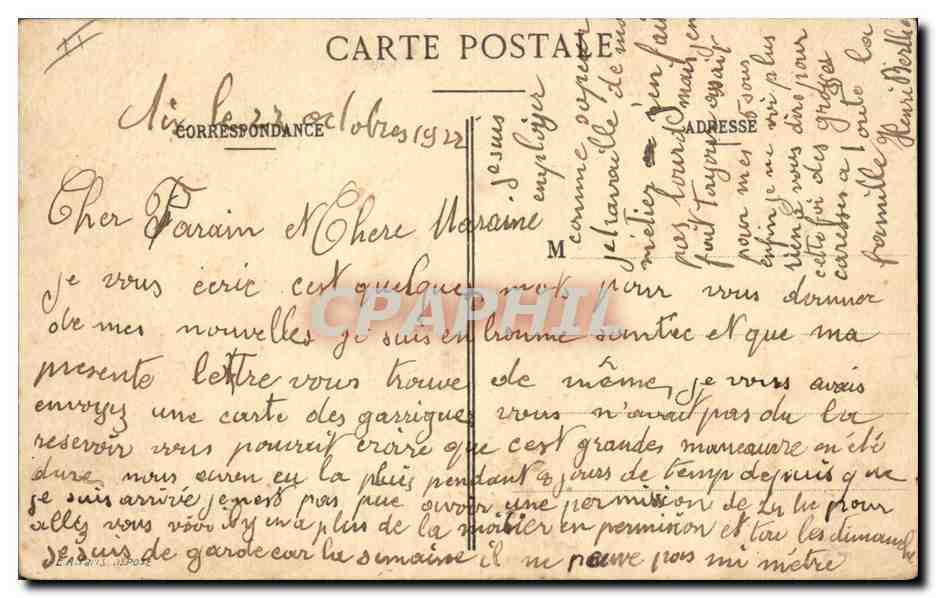 CARTE POSTALE
CORRESPONDANCE
ADRESSE
M
Aix le 22 octobres 1922
Cher Parain et Chere Maraine
je vous ecric c'est quelques mots pour vous donner
de mes nouvelles je suis en bonne santée et que ma
presente lettre vous trouve de même, je vous avais
envoyez une carte des garrigues vous n'avait pas du la
resevoir vous pourait croire que c'est grandes maneuvre on été
dure nous avren eu la pluis pendant 8 jours de temp depuis que
je suis arrivé je nest pas pue avoir une permission de 24 hr pour
allez vous voir il y en a plus de la moitier en permission et tou les dimanche
je suis de garde car la semaine il ne peuve pas mi métre
je suis
employer
comme
je travaille de mo
métier j'en fai
pas lourd mais j'en
fait toujours assait
pour mes sous
enfin je ne voi plus
rien a vous dire pour
cette foi des grosses
caresses a toute la
famille Henri Berlie
CPAPHIL